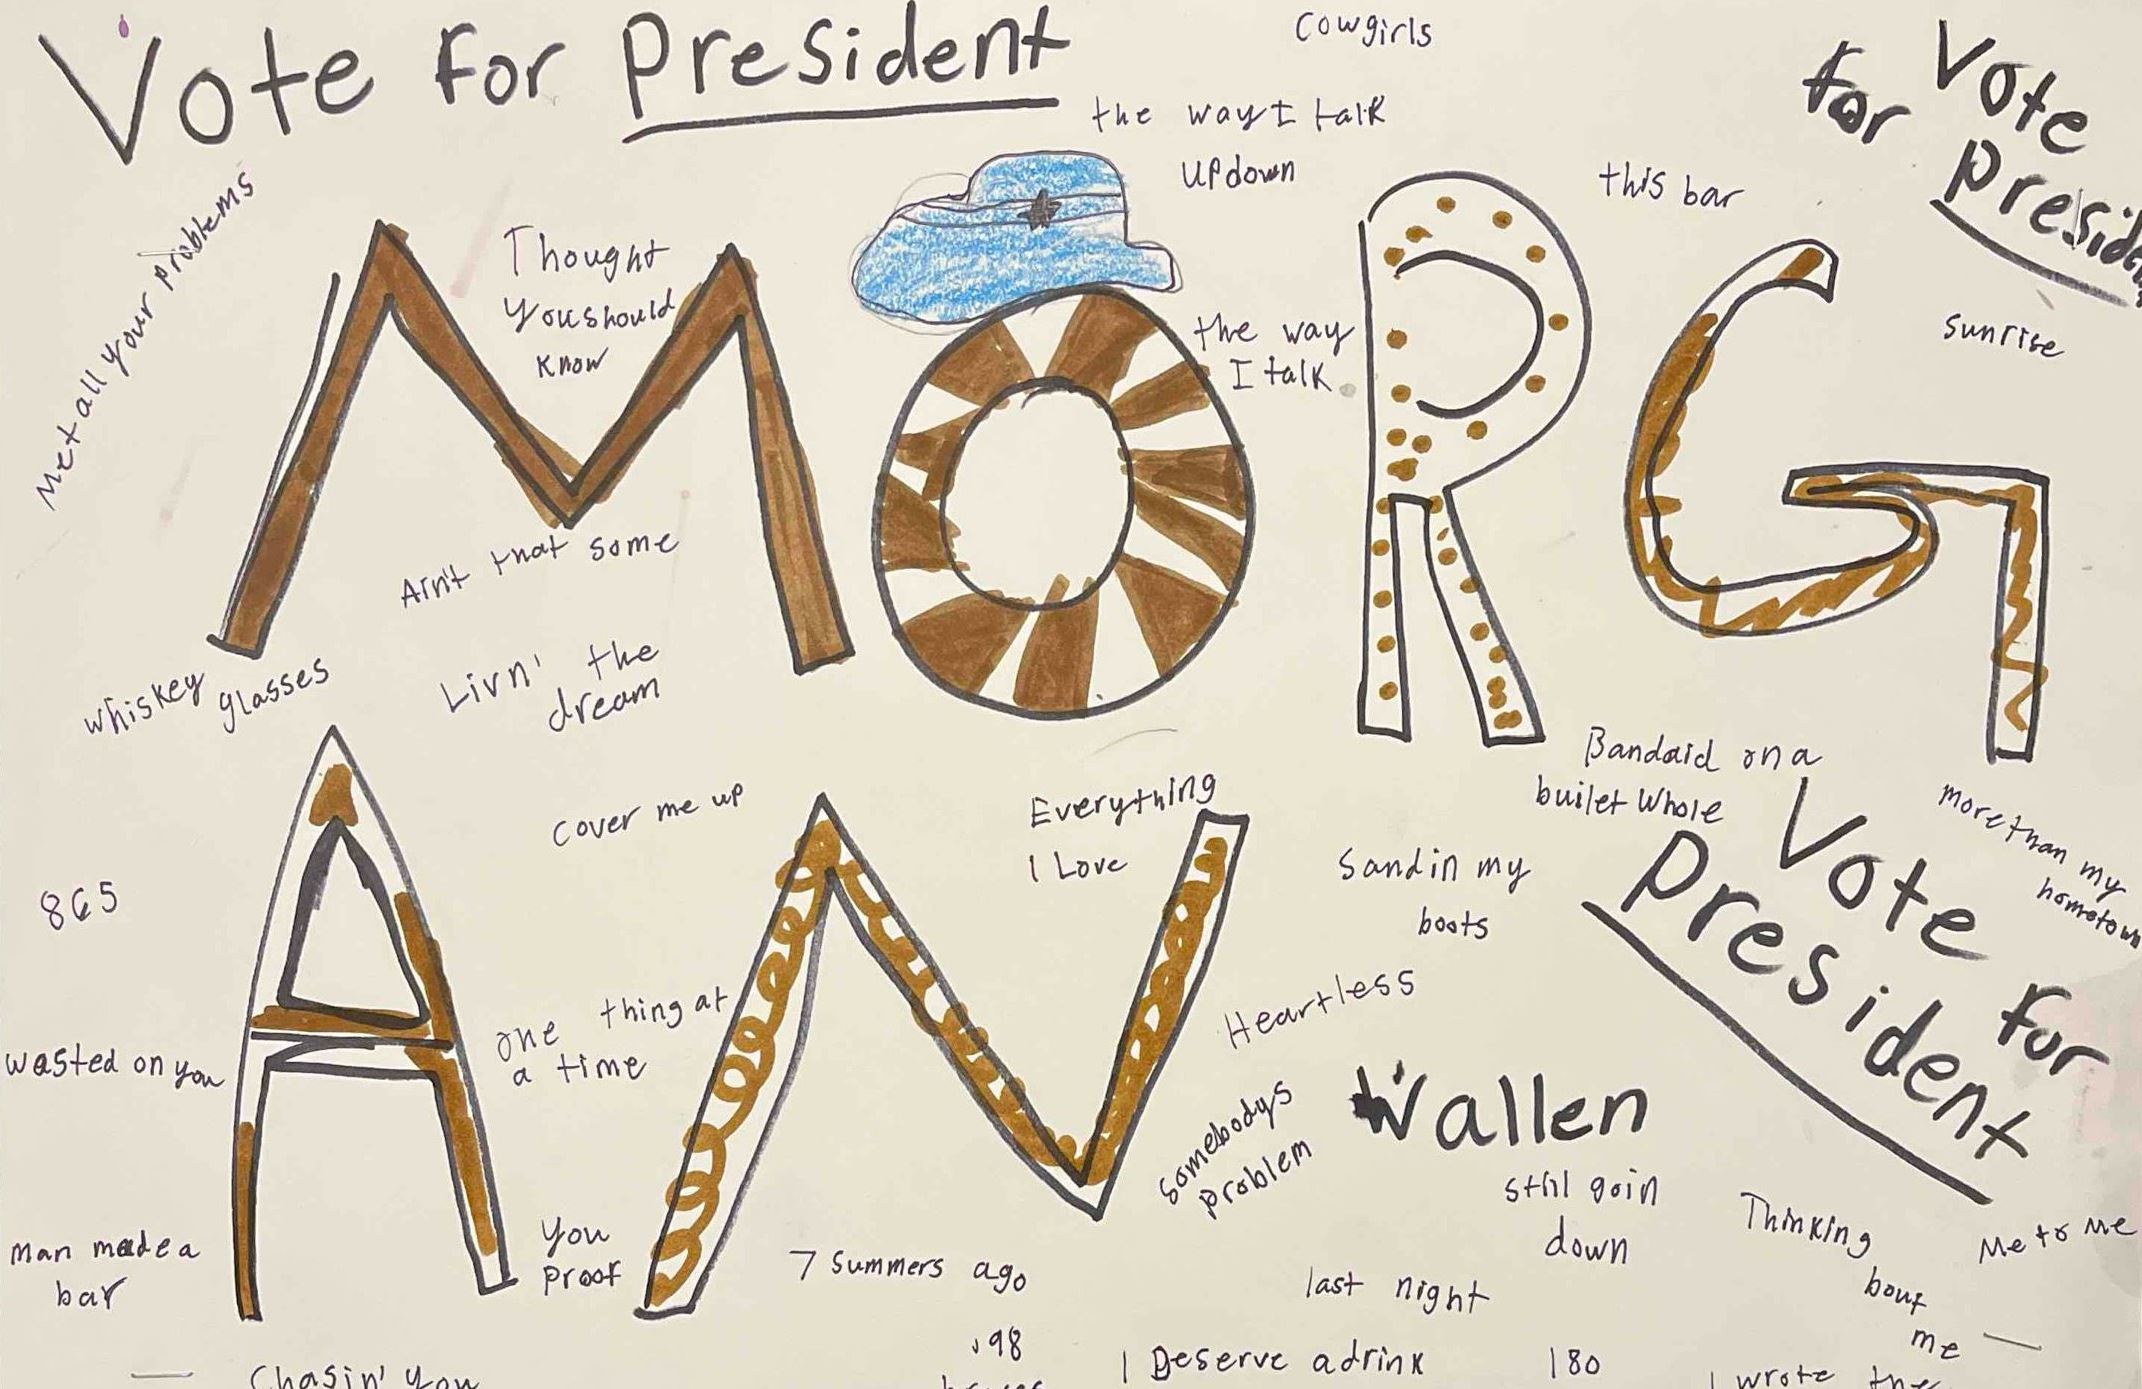 Vote for President
Cowgirls
Vote
for
Presid
the way I talk
Updown
this bar
Met all your problems
Thought
You should
know
the way
I talk
sunrise
MORG
Ain't that some
whiskey glasses
Livn' the
dream
Bandaid on a
builet Whole
more than my
hometown
cover me up
Everything
I Love
Vote for
President
Sand in my
boots
865
AN
one thing at
a time
Heartless
wasted on you
Wallen
somebodys
problem
still goin
down
Thinking
bout
me
Me to Me
Man made a
bar
You
proof
7 Summers ago
last night
98
I Deserve a drink
180
Chasin' You
I wrote the